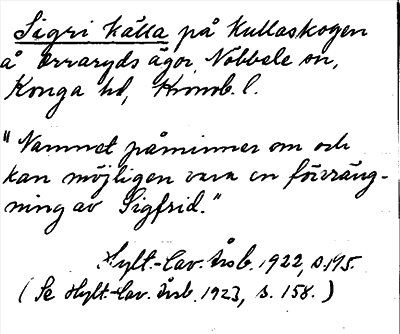 Sigri källa på Kullaskogen
å Orraryds ägor, Nobbele sn,
Konga hd, Kronob. l.
"Namnet påminner om och
kan möjligen vara en förvräng-
ning av Sigfrid."
Hylt.-Cav. Årsb. 1922, s. 195.
(Se Hylt.-Cav. Årsb. 1923, s. 158.)